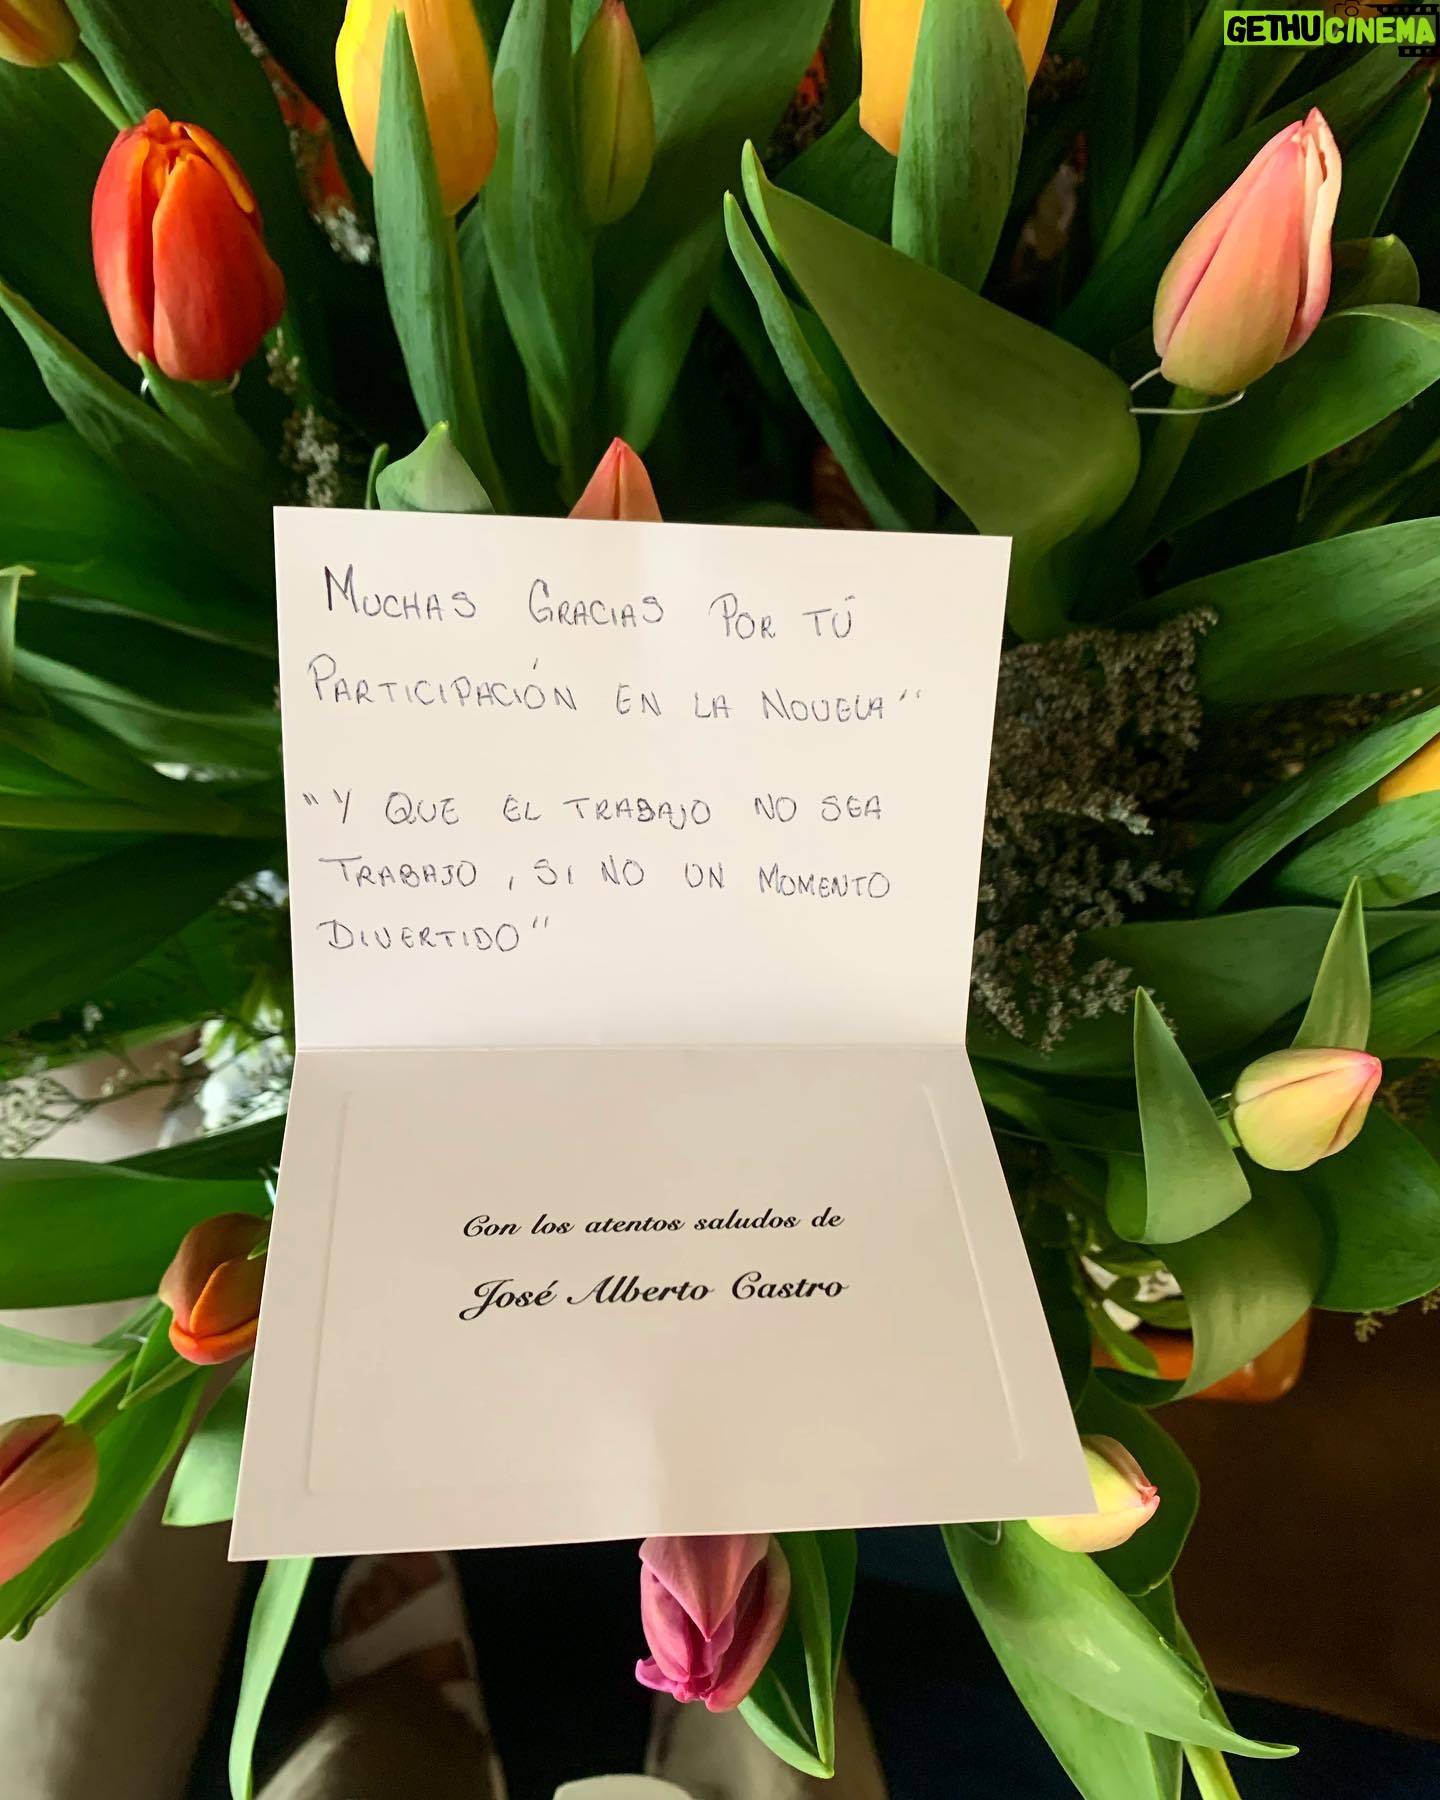 GETHUCINEMA
MUCHAS GRACIAS POR TÚ
PARTICIPACIÓN EN LA NOVELA"
"Y QUE EL TRABAJO NO SEA
TRABAJO, SI NO UN MOMENTO
DIVERTIDO"
Con los atentos saludos de
José Alberto Castro